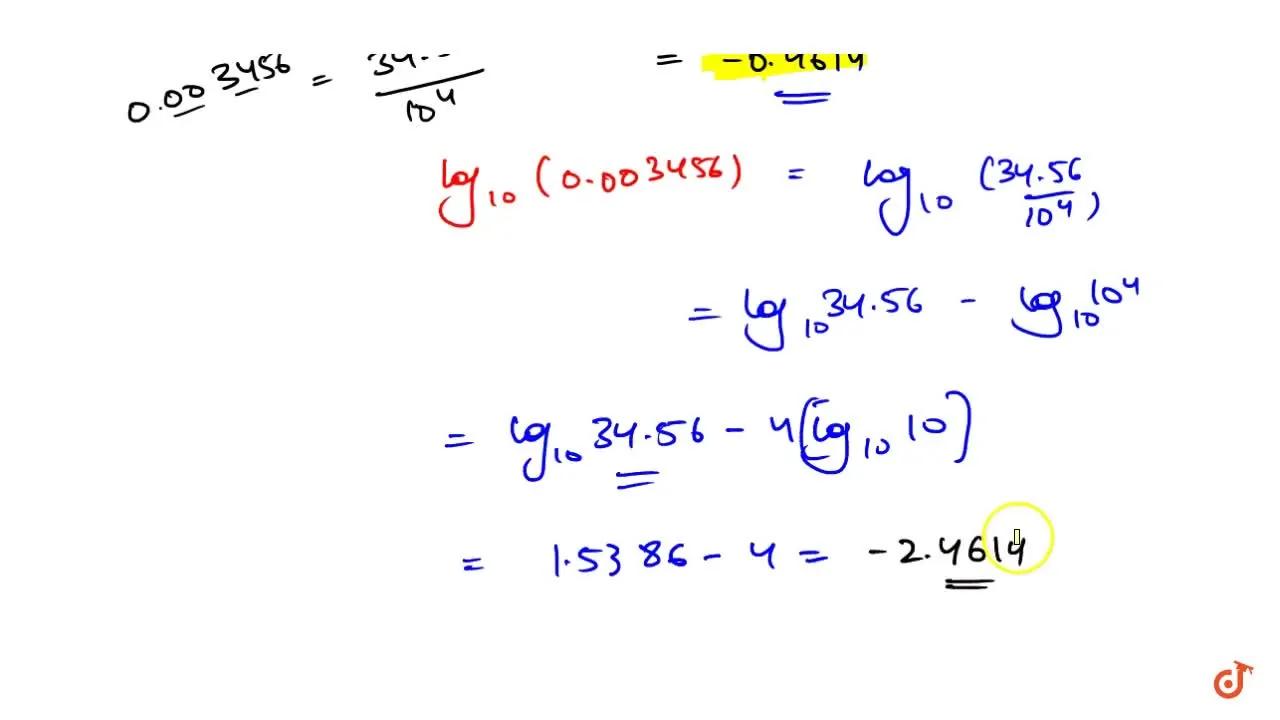 0.003456 = 34. / 10^4 = -0.4614
log_10 (0.003456) = log_10 (34.56 / 10^4)
= log_10 34.56 - log_10 10^4
= log_10 34.56 - 4 [log_10 10]
= 1.5386 - 4 = -2.4614